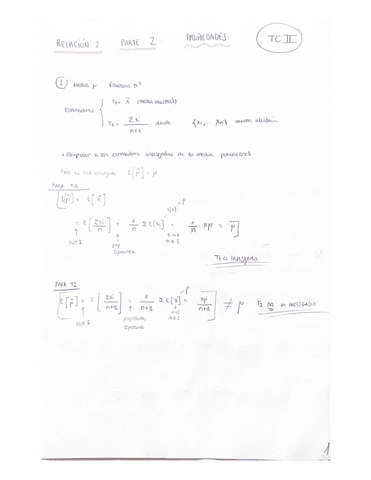 RELACIÓN 2 PARTE 2 PROPIEDADES TC II
① Media μ Varianza σ²
Estimadores
T₁ = X̄ (media muestral)
T₂ = Σxi / n+1 donde {x₁, Xn} muestra aleatoria
• Comprobar si son estimadores insesgados de la media poblacional
E[μ̂] = μ
PARA T1
E[μ̂] = E[X̄]
= E[Σxi / n] = 1/n Σ E[xi] = 1/n · nμ = μ
prop esperanza
T1 es insesgado
PARA T2
E[μ̂] = E[Σxi / n+1] = 1/n+1 Σ E[xi] = nμ / n+1 ≠ μ T2 NO es INSESGADO
propiedades esperanza
1